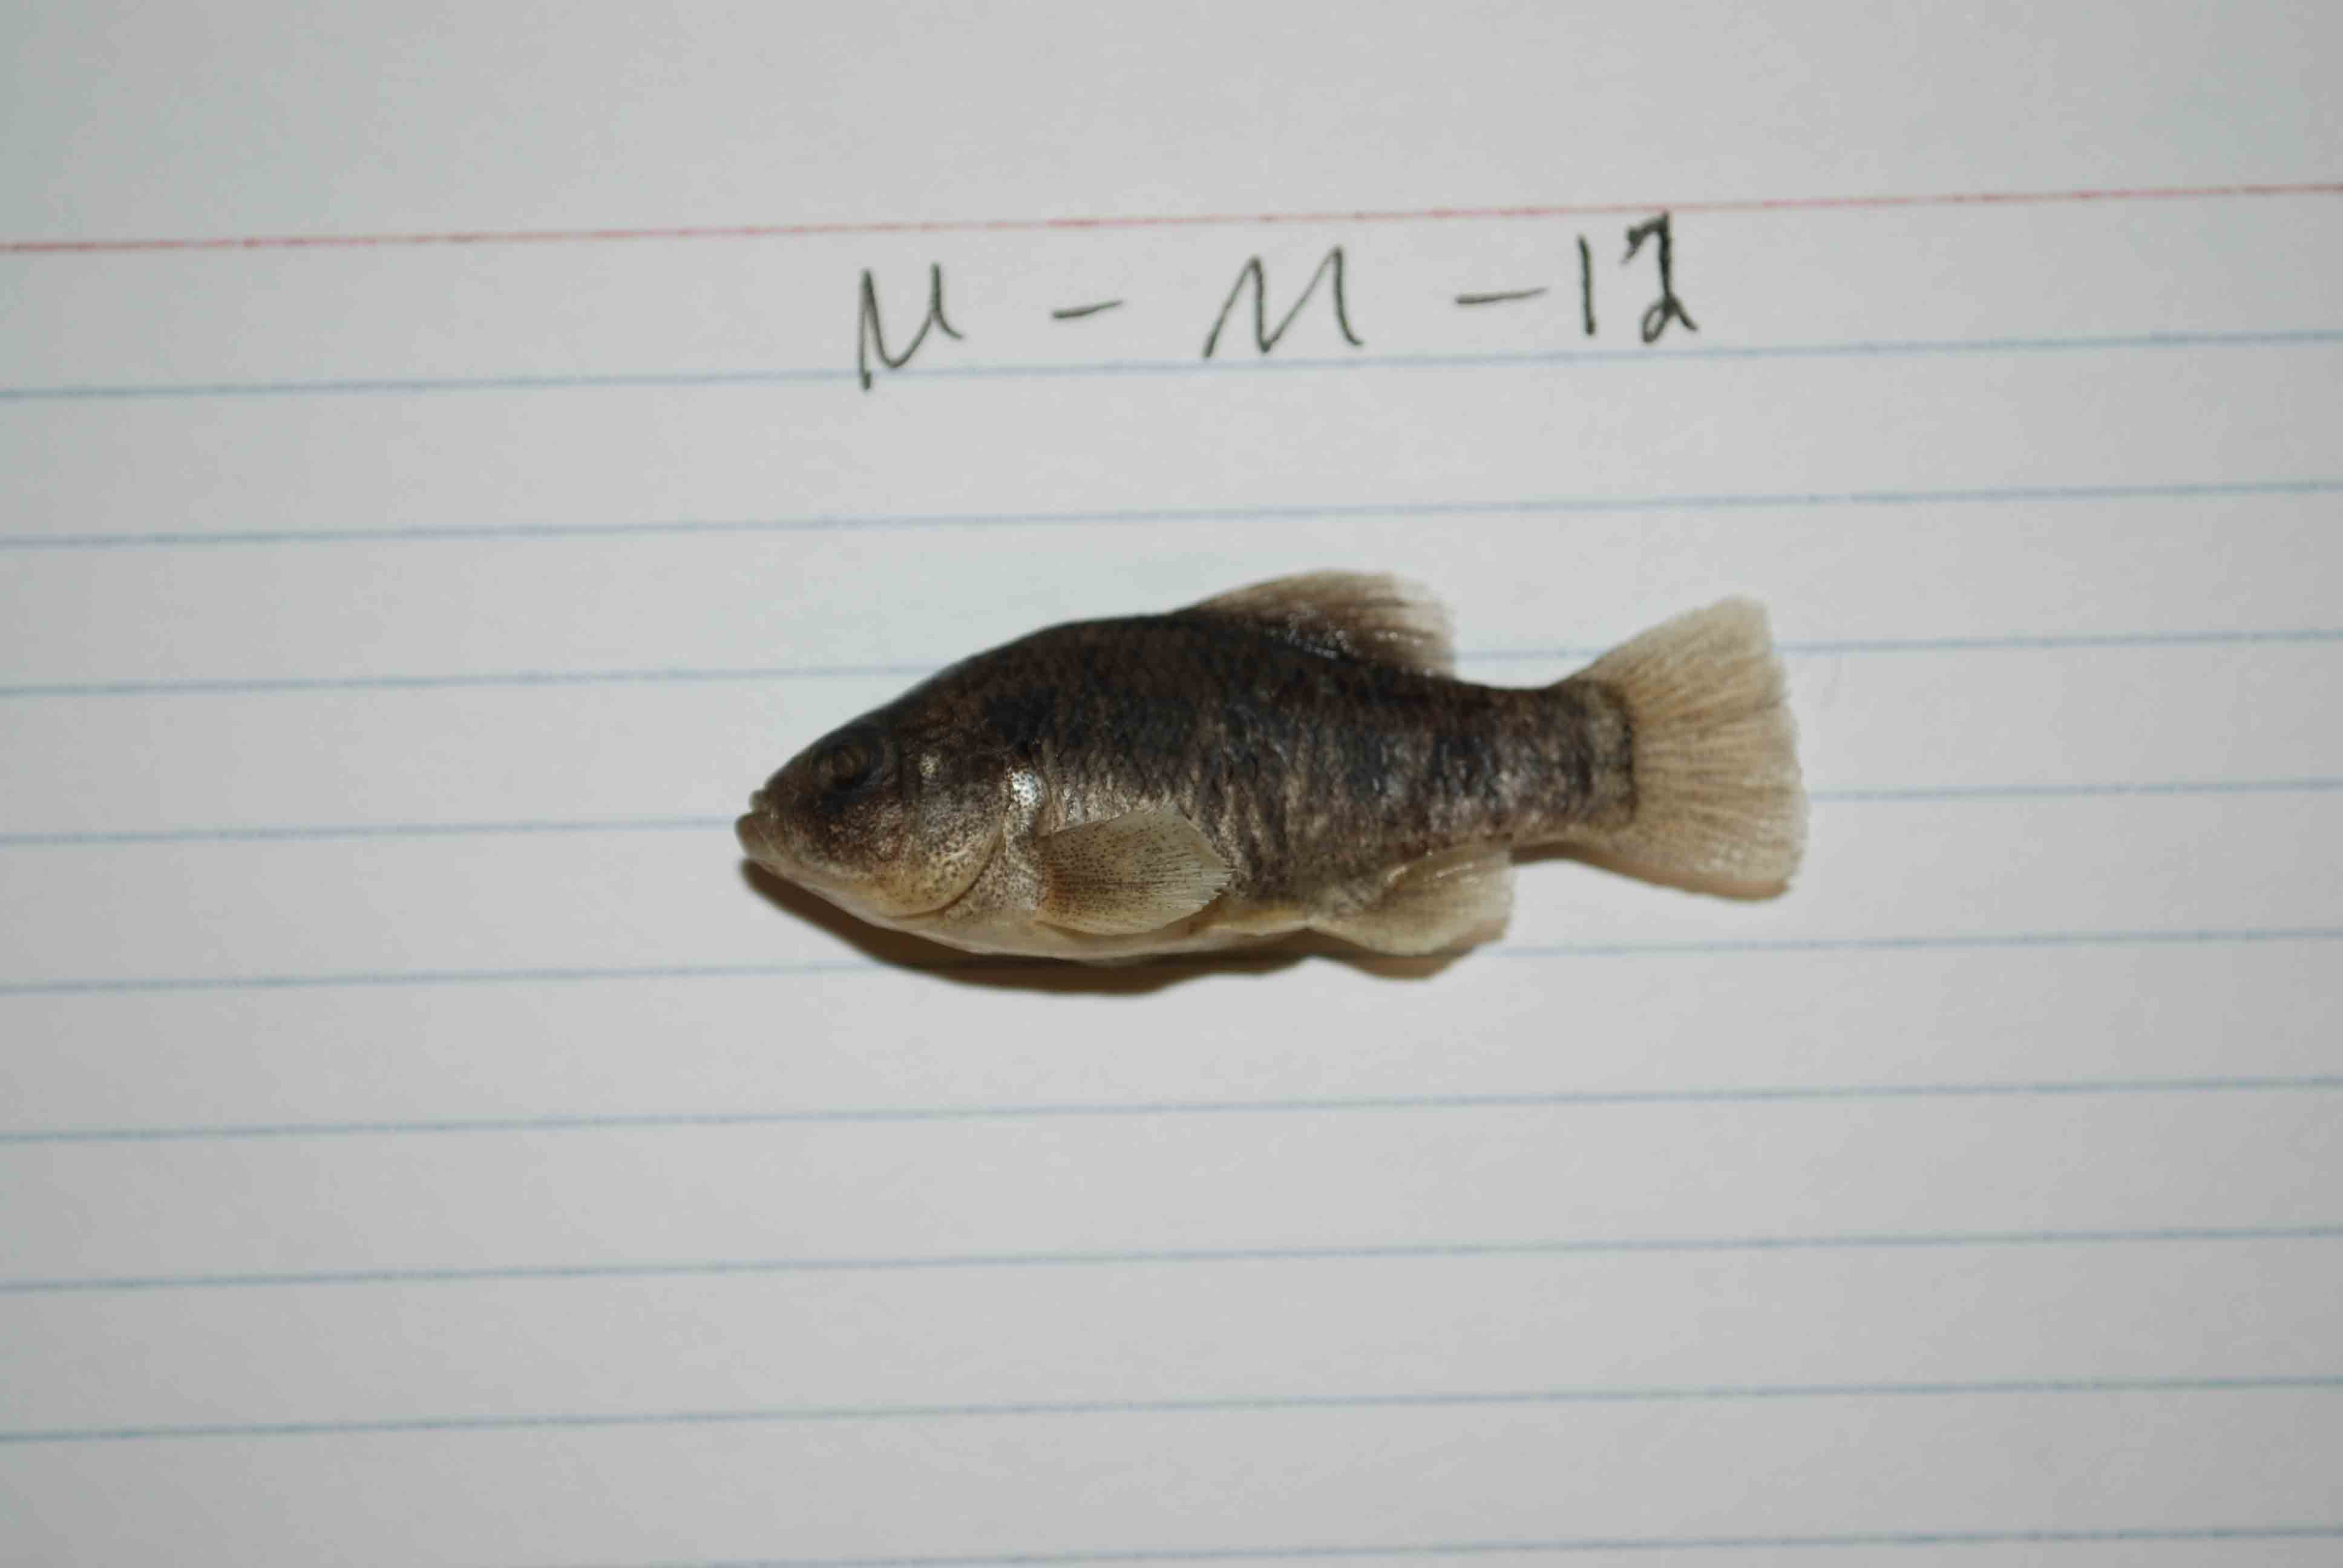 M - M - 12